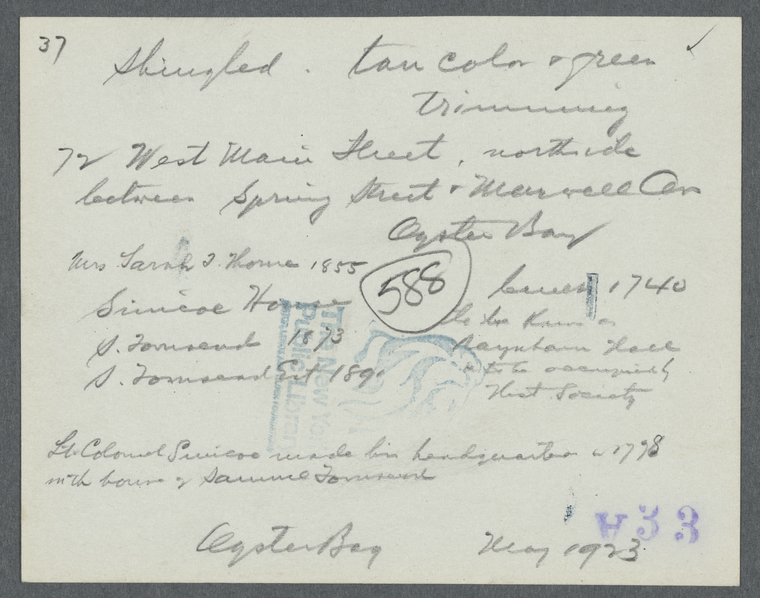 37
Shingled . tan color & green
trimming
72 West Main Street, north side
between Spring Street & Maxwell Ave
Oyster Bay
Mrs Sarah T. Thorne 1855
588
Simcoe House
1740
S. Townsend 1873
to be known as
Raynham Hall
S. Townsend Est 189
& to be occupied by
Hist Society
The New York
Public Library
Lt Colonel Simcoe made his headquarters in 1778
in th house of Samuel Townsend
Oyster Bay May 1923
A53